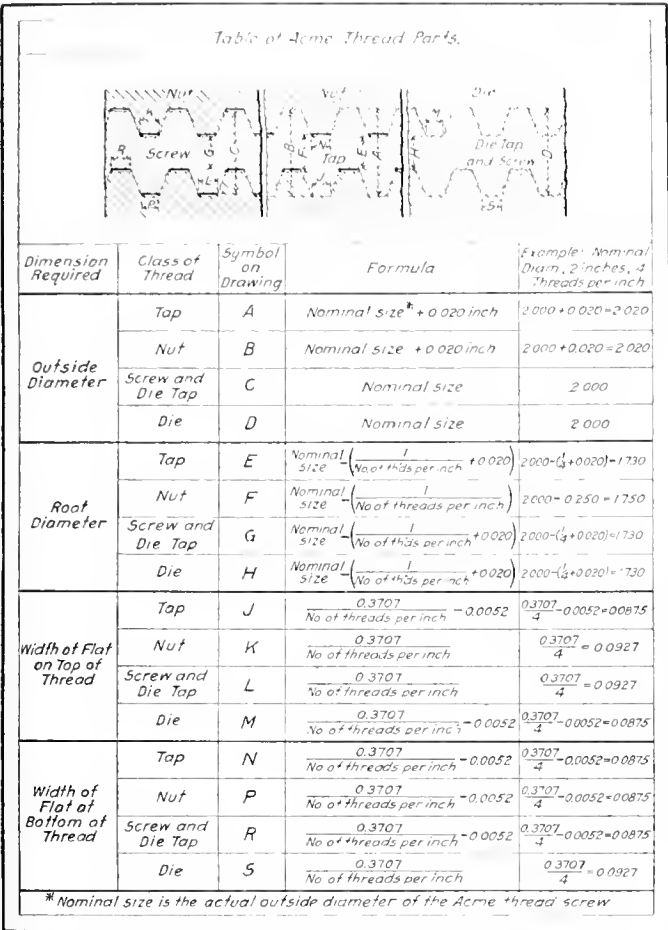 Table of Acme Thread Parts.
Nut Nut Die
Screw Tap Die Tap and Screw
Dimension Required | Class of Thread | Symbol on Drawing | Formula | Example: Nominal Diam, 2 inches, 4 Threads per inch
Outside Diameter
Tap | A | Nominal size* + 0.020 inch | 2.000 + 0.020 = 2.020
Nut | B | Nominal size + 0.020 inch | 2.000 + 0.020 = 2.020
Screw and Die Tap | C | Nominal size | 2.000
Die | D | Nominal size | 2.000
Root Diameter
Tap | E | Nominal size - (1 / No. of thds per inch + 0.020) | 2.000 - (1/4 + 0.020) = 1.730
Nut | F | Nominal size - (1 / No of threads per inch) | 2.000 - 0.250 = 1.750
Screw and Die Tap | G | Nominal size - (1 / No of thds per inch + 0.020) | 2.000 - (1/4 + 0.020) = 1.730
Die | H | Nominal size - (1 / No of thds per inch + 0.020) | 2.000 - (1/4 + 0.020) = 1.730
Width of Flat on Top of Thread
Tap | J | 0.3707 / No of threads per inch - 0.0052 | 0.3707 / 4 - 0.0052 = 0.0875
Nut | K | 0.3707 / No of threads per inch | 0.3707 / 4 = 0.0927
Screw and Die Tap | L | 0.3707 / No of threads per inch | 0.3707 / 4 = 0.0927
Die | M | 0.3707 / No of threads per inch - 0.0052 | 0.3707 / 4 - 0.0052 = 0.0875
Width of Flat at Bottom of Thread
Tap | N | 0.3707 / No of threads per inch - 0.0052 | 0.3707 / 4 - 0.0052 = 0.0875
Nut | P | 0.3707 / No of threads per inch - 0.0052 | 0.3707 / 4 - 0.0052 = 0.0875
Screw and Die Tap | R | 0.3707 / No of threads per inch - 0.0052 | 0.3707 / 4 - 0.0052 = 0.0875
Die | S | 0.3707 / No of threads per inch | 0.3707 / 4 = 0.0927
* Nominal size is the actual outside diameter of the Acme thread screw